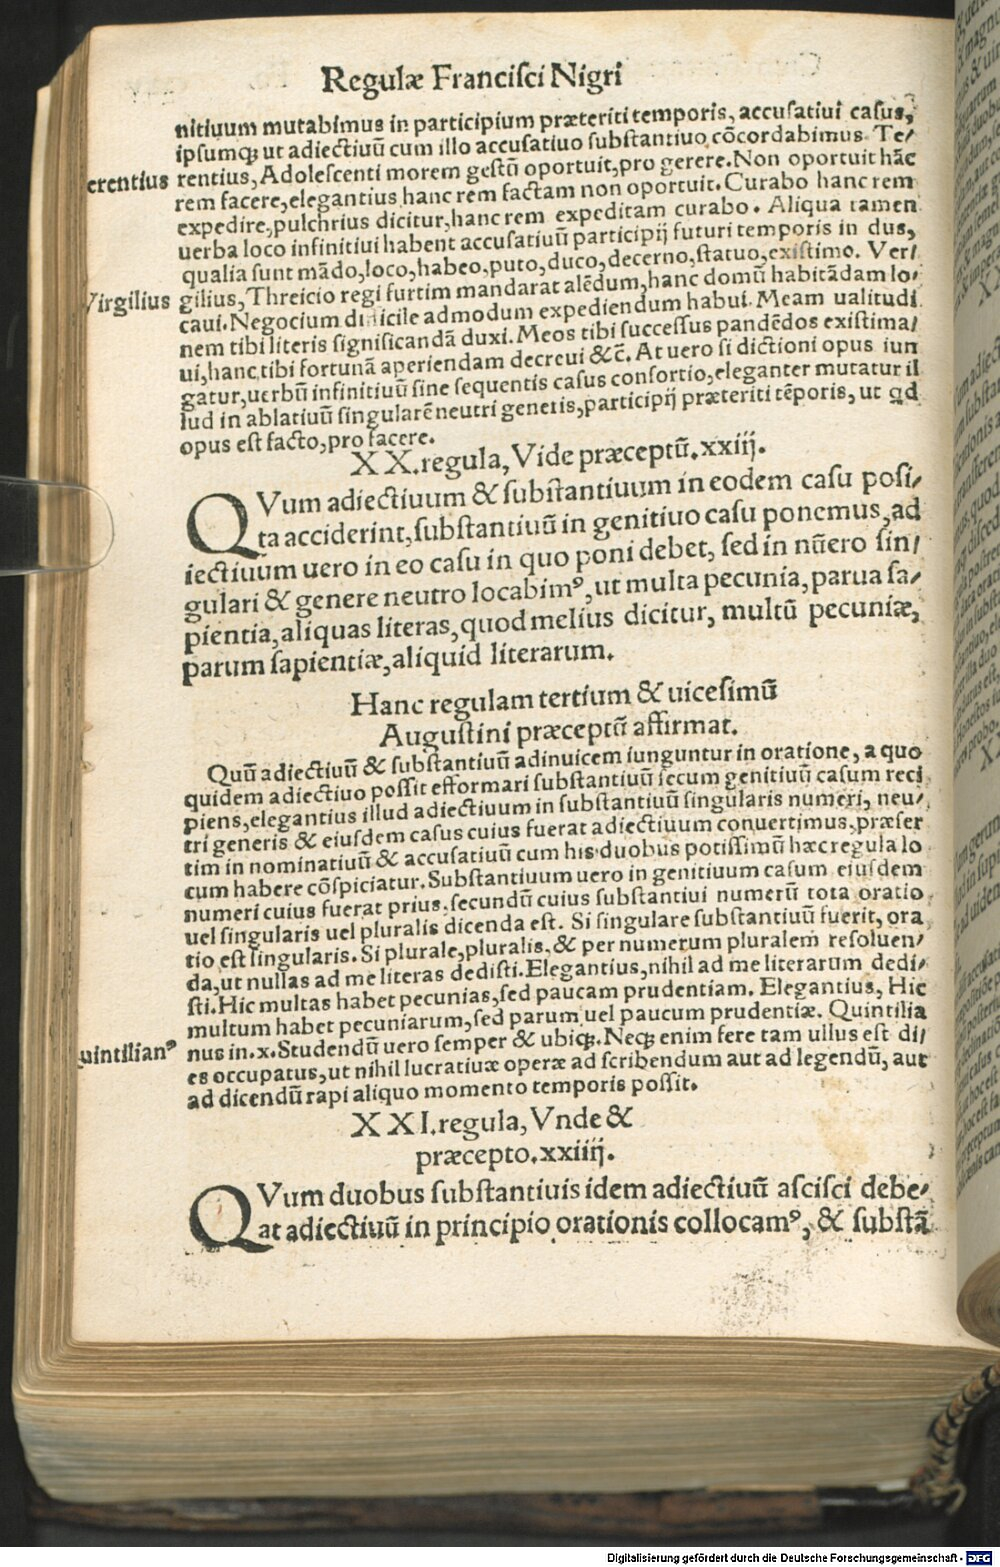 Regulæ Franciſci Nigri
nitiuum mutabimus in participium præteriti temporis, accuſatiui caſus,
ipſumqꝫ ut adiectiuū cum illo accuſatiuo ſubſtantiuo cōcordabimus. Te/
erentius
rentius, Adoleſcenti morem geſtū oportuit, pro gerere. Non oportuit hāc
rem facere, elegantius hanc rem factam non oportuit. Curabo hanc rem
expedire, pulchrius dicitur, hanc rem expeditam curabo. Aliqua tamen
uerba loco infinitiui habent accuſatiuū participij futuri temporis in dus,
qualia ſunt mādo, loco, habeo, puto, duco, decerno, ſtatuo, exiſtimo. Ver/
Virgilius
gilius, Threicio regi furtim mandarat alēdum, hanc domū habitādam lo/
caui. Negocium difficile admodum expediendum habui. Meam ualitudi
nem tibi literis ſignificandā duxi. Meos tibi ſucceſſus pandēdos exiſtima/
ui, hanc tibi fortunā aperiendam decreui &c̄. At uero ſi dictioni opus iun
gatur, uerbū infinitiuū ſine ſequentis caſus conſortio, eleganter mutatur il
lud in ablatiuū ſingularē neutri generis, participij præteriti tēporis, ut qd
opus eſt facto, pro facere.
XX. regula, Vide præceptū. xxiij.
QVum adiectiuum & ſubſtantiuum in eodem caſu poſi/
ta acciderint, ſubſtantiuū in genitiuo caſu ponemus, ad
iectiuum uero in eo caſu in quo poni debet, ſed in nūero ſin/
gulari & genere neutro locabimꝰ, ut multa pecunia, parua ſa/
pientia, aliquas literas, quod melius dicitur, multū pecuniæ,
parum ſapientiæ, aliquid literarum.
Hanc regulam tertium & uiceſimū
Auguſtini præceptū affirmat.
Quū adiectiuū & ſubſtantiuū adinuicem iunguntur in oratione, a quo
quidem adiectiuo poſſit efformari ſubſtantiuū ſecum genitiuū caſum reci
piens, elegantius illud adiectiuum in ſubſtantiuū ſingularis numeri, neu/
tri generis & eiuſdem caſus cuius fuerat adiectiuum conuertimus, præſer
tim in nominatiuū & accuſatiuū cum his duobus potiſſimū hæc regula lo
cum habere cōſpiciatur. Subſtantiuum uero in genitiuum caſum eiuſdem
numeri cuius fuerat prius, ſecundū cuius ſubſtantiui numerū tota oratio
uel ſingularis uel pluralis dicenda eſt. Si ſingulare ſubſtantiuū fuerit, ora
tio eſt ſingularis. Si plurale, pluralis, & per numerum pluralem reſoluen/
da, ut nullas ad me literas dediſti. Elegantius, nihil ad me literarum dedi/
ſti. Hic multas habet pecunias, ſed paucam prudentiam. Elegantius, Hic
multum habet pecuniarum, ſed parum uel paucum prudentiæ. Quintilia
uintilianꝰ
nus in. x. Studendū uero ſemper & ubiqꝫ. Neqꝫ enim fere tam ullus eſt di/
es occupatus, ut nihil lucratiuæ operæ ad ſcribendum aut ad legendū, aut
ad dicendū rapi aliquo momento temporis poſſit.
XXI. regula, Vnde &
præcepto. xxiiij.
QVum duobus ſubſtantiuis idem adiectiuū aſciſci debe/
at adiectiuū in principio orationis collocamꝰ, & ſubſtā
Digitalisierung gefördert durch die Deutsche Forschungsgemeinschaft - DFG